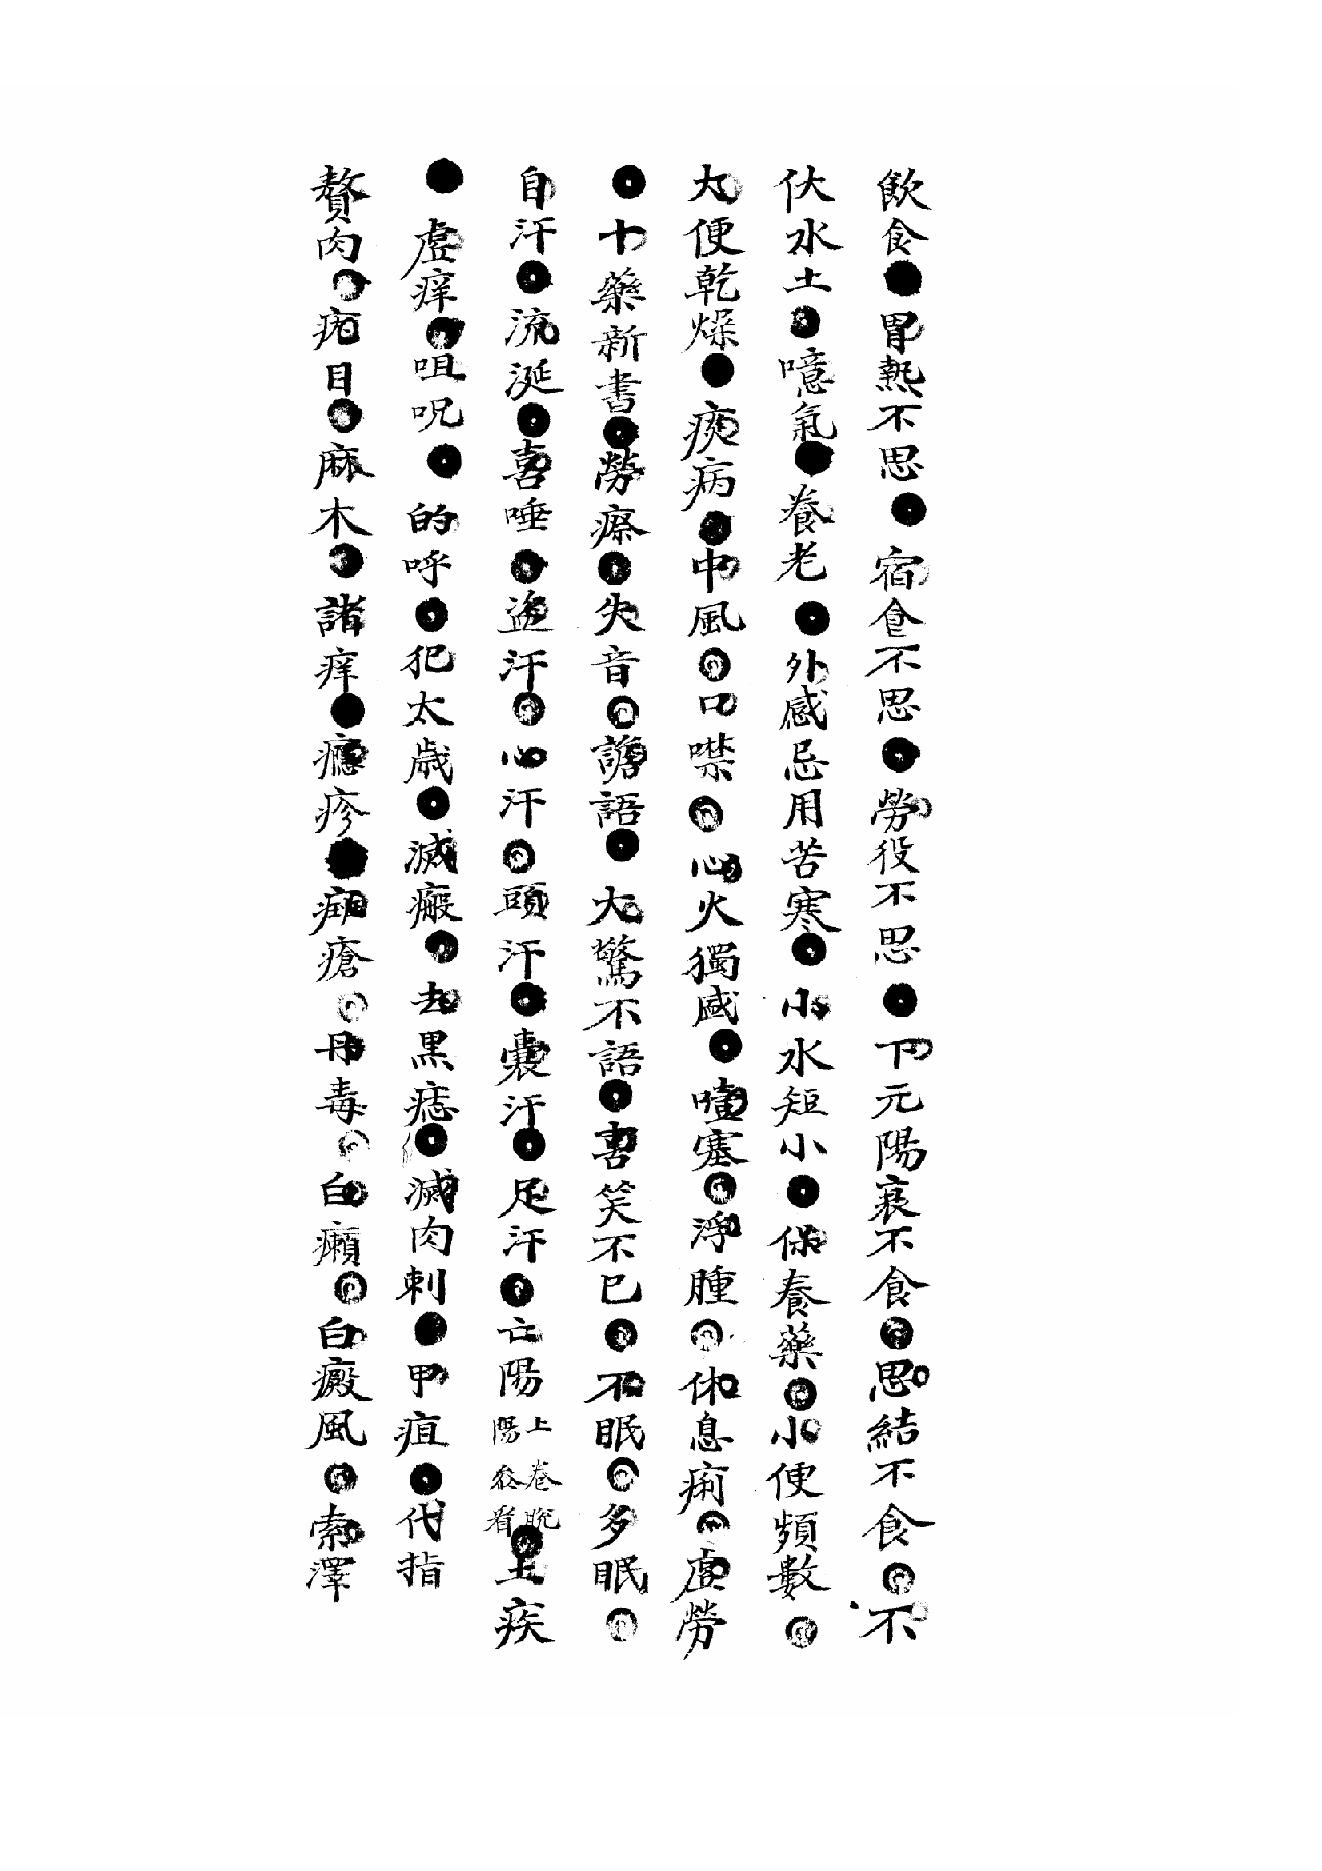 飲食●胃熱不思●宿食不思●勞役不思●下元陽衰不食●思結不食●不
伏水土●噫氣●養老●外感忌用苦寒●小水短小●保養藥●小便頻數●
大便乾燥●痰病●中風●口噤●心火獨盛●噎塞●浮腫●休息痢●虛勞
●十藥新書●勞瘵●失音●譫語●大驚不語●喜笑不已●不眠●多眠●
自汗●流涎●喜唾●盜汗●心汗●頭汗●囊汗●足汗●亡陽上卷脫陽叅看●土疾
●虛痒●咀呪●的呼●犯太歲●滅瘢●去黑痣●滅肉刺●甲疽●代指
贅肉●疱目●麻木●諸痒●癮疹●疿瘡●丹毒●白癩●白癜風●索澤